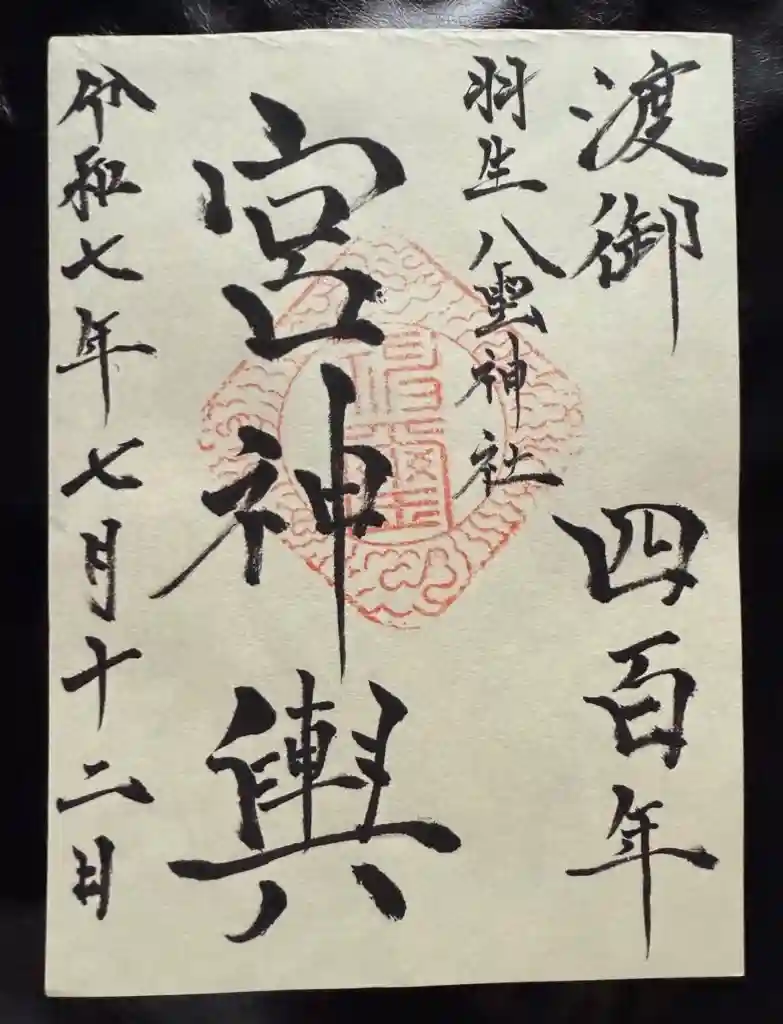 渡御 四百年
羽生八雲神社
宮神輿
令和七年七月十二日